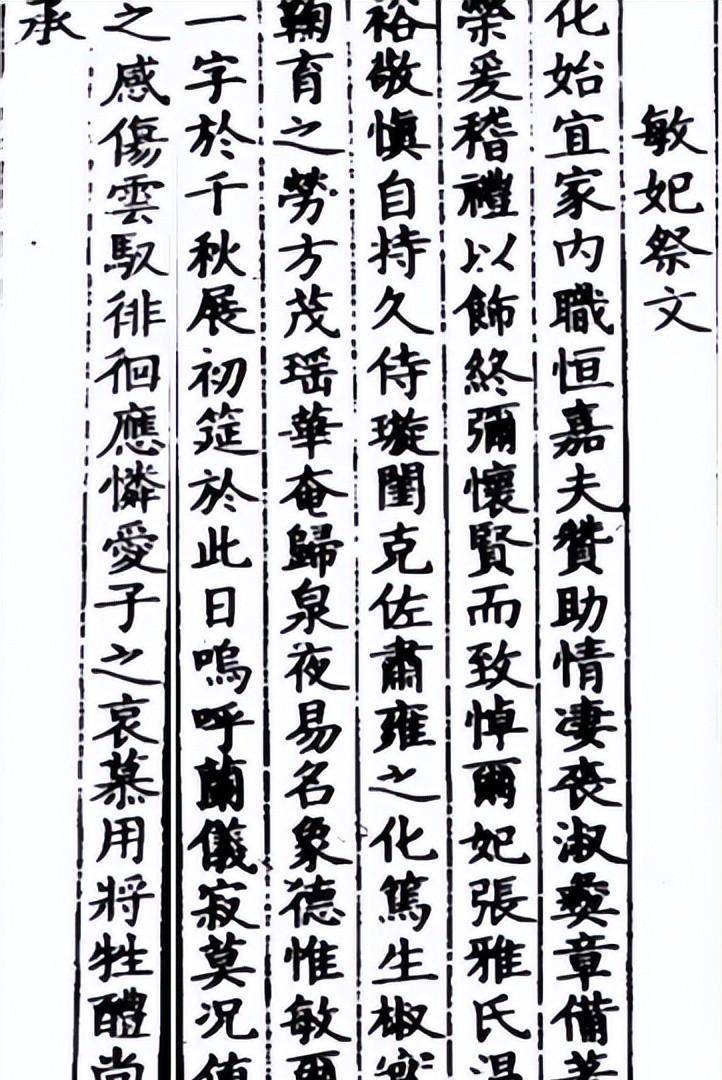 敏妃祭文
化始宜家内職恒嘉夫贊助情凄喪淑彝章備
榮爰稽禮以飾終彌懷賢而致悼爾妃張雅氏温
裕敬慎自持久侍璇閨克佐肅雍之化篤生椒
鞠育之勞方茂瑶華奄歸泉夜易名象德惟敏爾
一字於千秋展初筵於此日嗚呼蘭儀寂莫况值
之感傷雲馭徘徊應憐愛子之哀慕用將牲醴尚
承